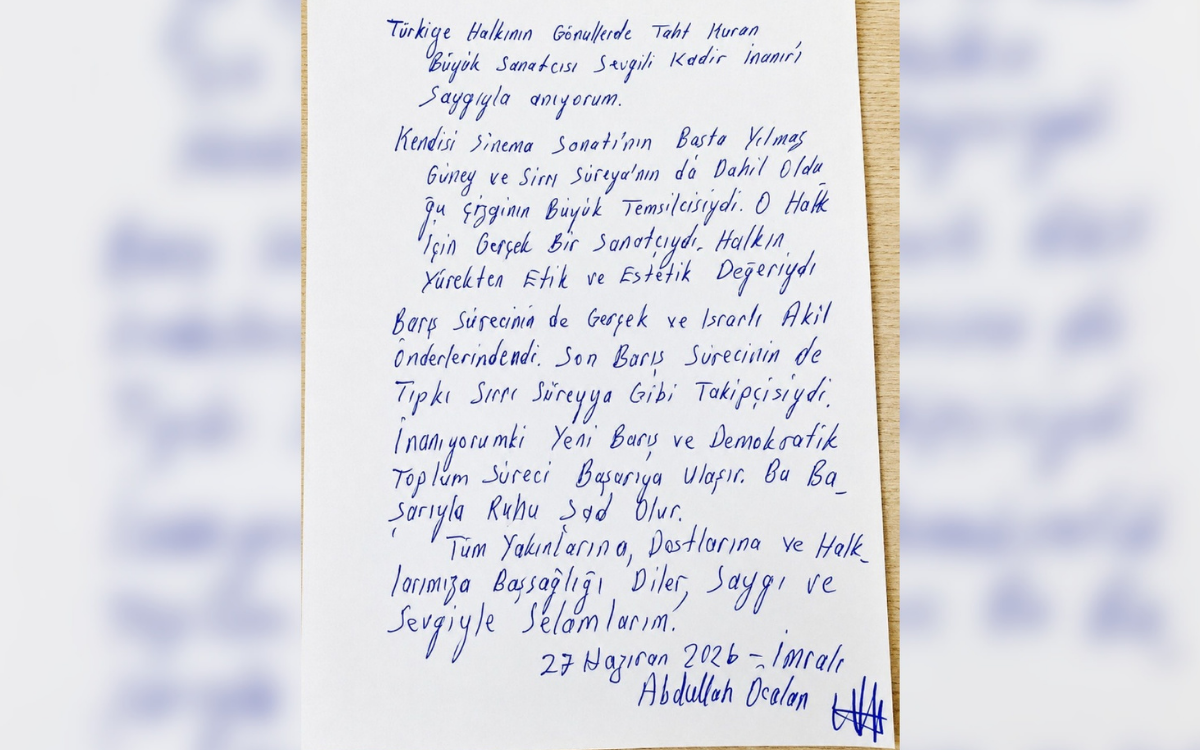 Türkiye Halkının Gönüllerde Taht Kuran
Büyük Sanatçısı Sevgili Kadir İnanır'ı
Saygıyla anıyorum.
Kendisi Sinema Sanatı'nın Başta Yılmaz
Güney ve Sırrı Süreya'nın da Dahil Oldu
ğu Çizginin Büyük Temsilcisiydi. O Halk
İçin Gerçek Bir Sanatçıydı. Halkın
Yürekten Etik ve Estetik Değeriydi
Barış Sürecinin de Gerçek ve Israrlı Akil
Önderlerindendi. Son Barış Sürecinin de
Tıpkı Sırrı Süreyya Gibi Takipçisiydi.
İnanıyorumki Yeni Barış ve Demokratik
Toplum Süreci Başarıya Ulaşır. Bu Ba_
şarıyla Ruhu Şad Olur.
Tüm Yakınlarına, Dostlarına ve Halk_
larımıza Başsağlığı Diler, Saygı ve
Sevgiyle Selamlarım.
27 Haziran 2026 - İmralı
Abdullah Öcalan